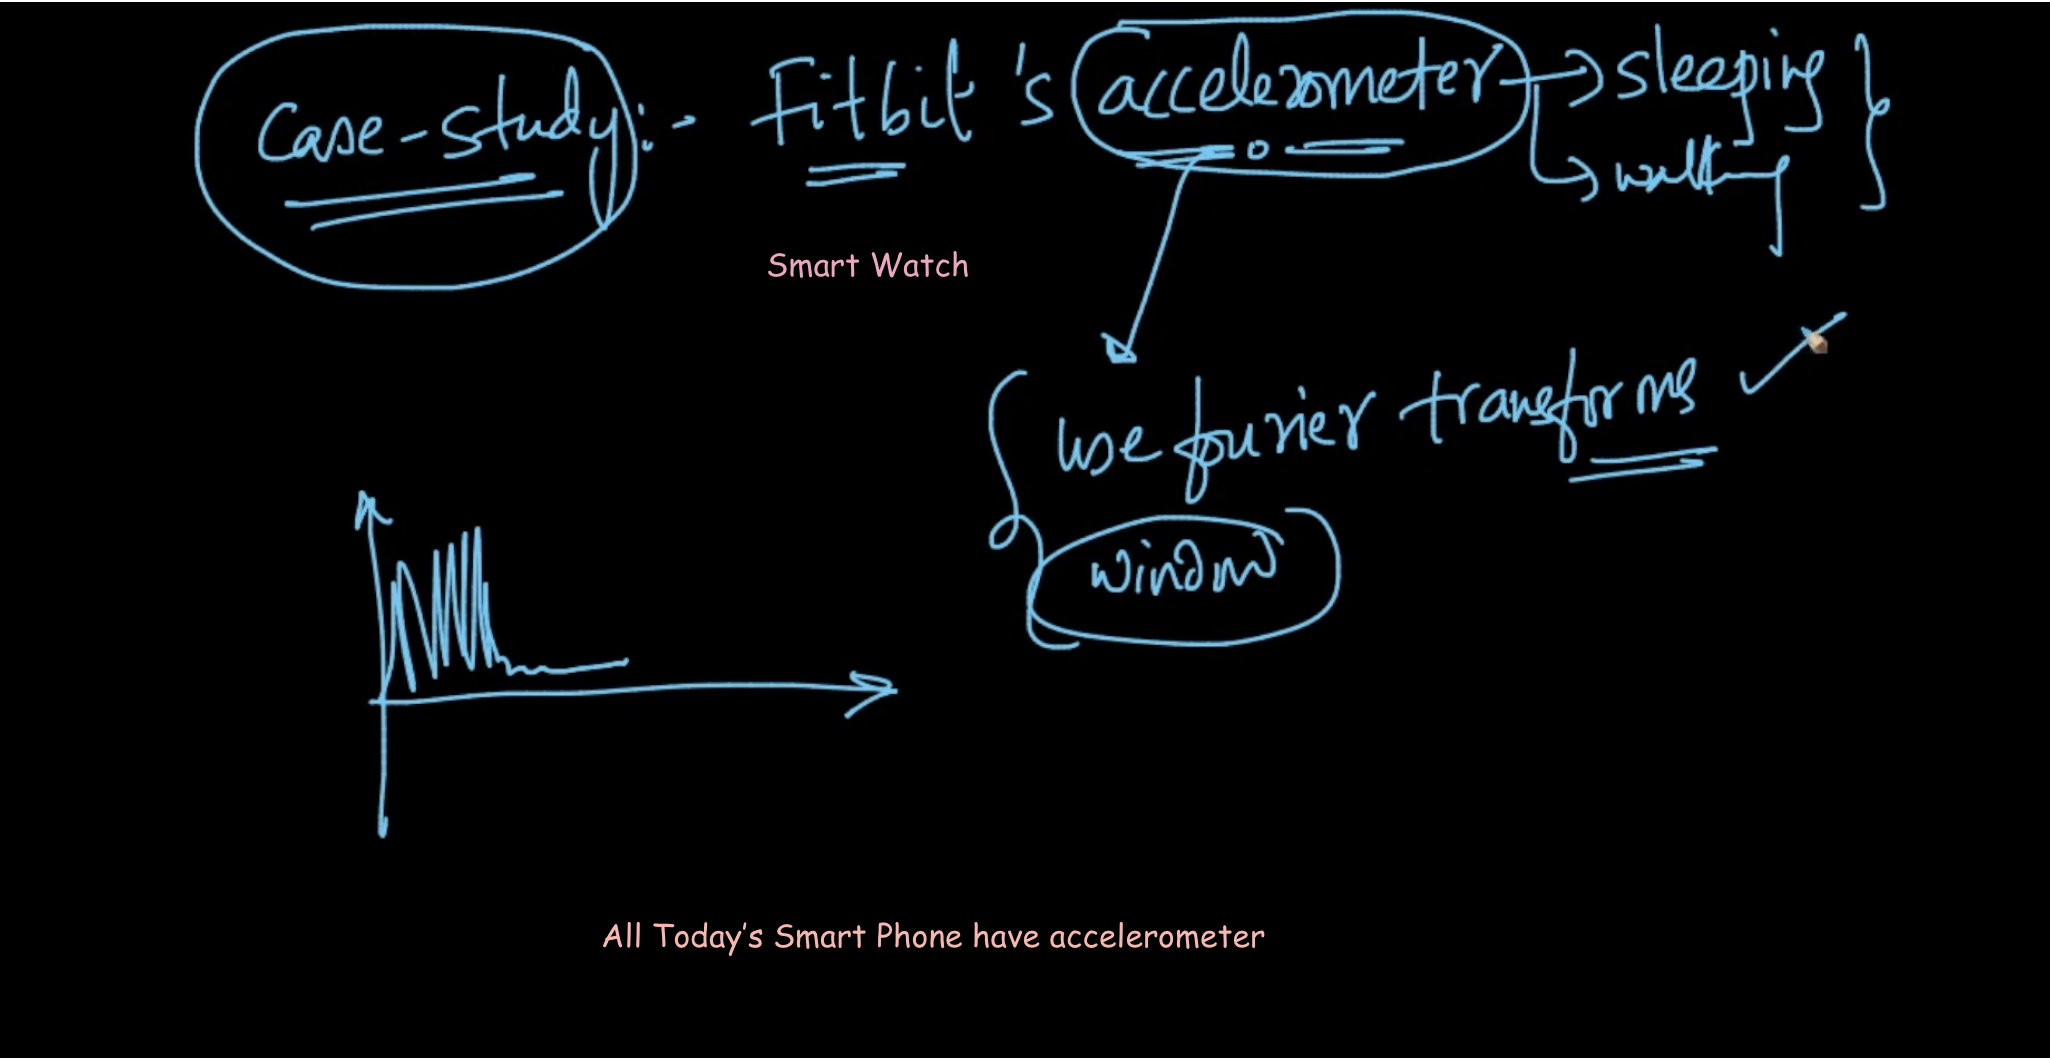 Case-study:- Fitbit's accelerometer → sleeping
→ walking
Smart Watch
use fourier transforms ✓
window
All Today's Smart Phone have accelerometer